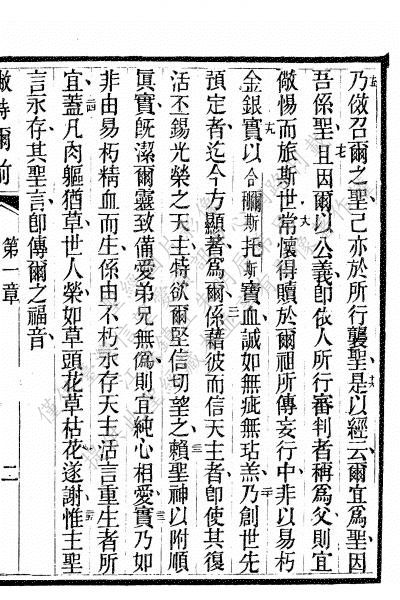 乃傚召爾之聖己亦於所行襲聖是以經云爾宜爲聖因
吾係聖且因爾以公義即依人所行審判者稱爲父則宜
儆惕而旅斯世常懷得贖於爾祖所傳妄行中非以易朽
金銀寶以合彌斯托斯寶血誠如無疵無玷羔乃創世先
預定者迄今方顯著爲爾係藉彼而信天主者即使其復
活丕錫光榮之天主特欲爾堅信切望之賴聖神以附順
眞實旣潔爾靈致備愛弟兄無僞則宜純心相愛實乃如
非由易朽精血而生係由不朽永存天主活言重生者所
宜蓋凡肉軀猶草世人榮如草頭花草枯花遂謝惟主聖
言永存其聖言卽傳爾之福音
第一章
二